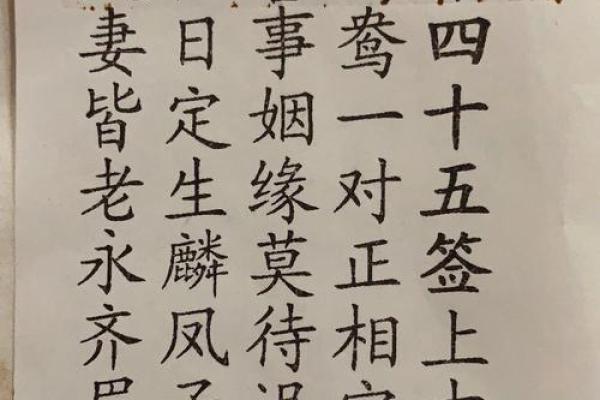 四十五签上
鸯一对正相
事姻缘莫待
日定生麟凤
妻皆老永齐